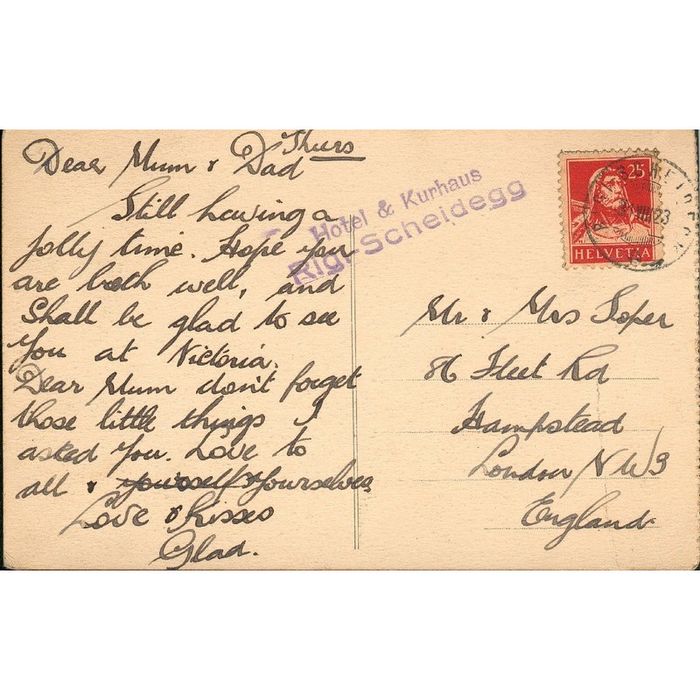 Thurs
Dear Mum & Dad
Still having a
jolly time. Hope you
are both well, and
Shall be glad to see
you at Victoria.
Dear Mum don't forget
those little things I
asked you. Love to
all & yourself & yourselves
Love & kisses
Glad.
Hotel & Kurhaus
Rigi-Scheidegg
25
HELVETIA
Mr & Mrs Soper
86 Fleet Rd
Hampstead
London NW3
England.